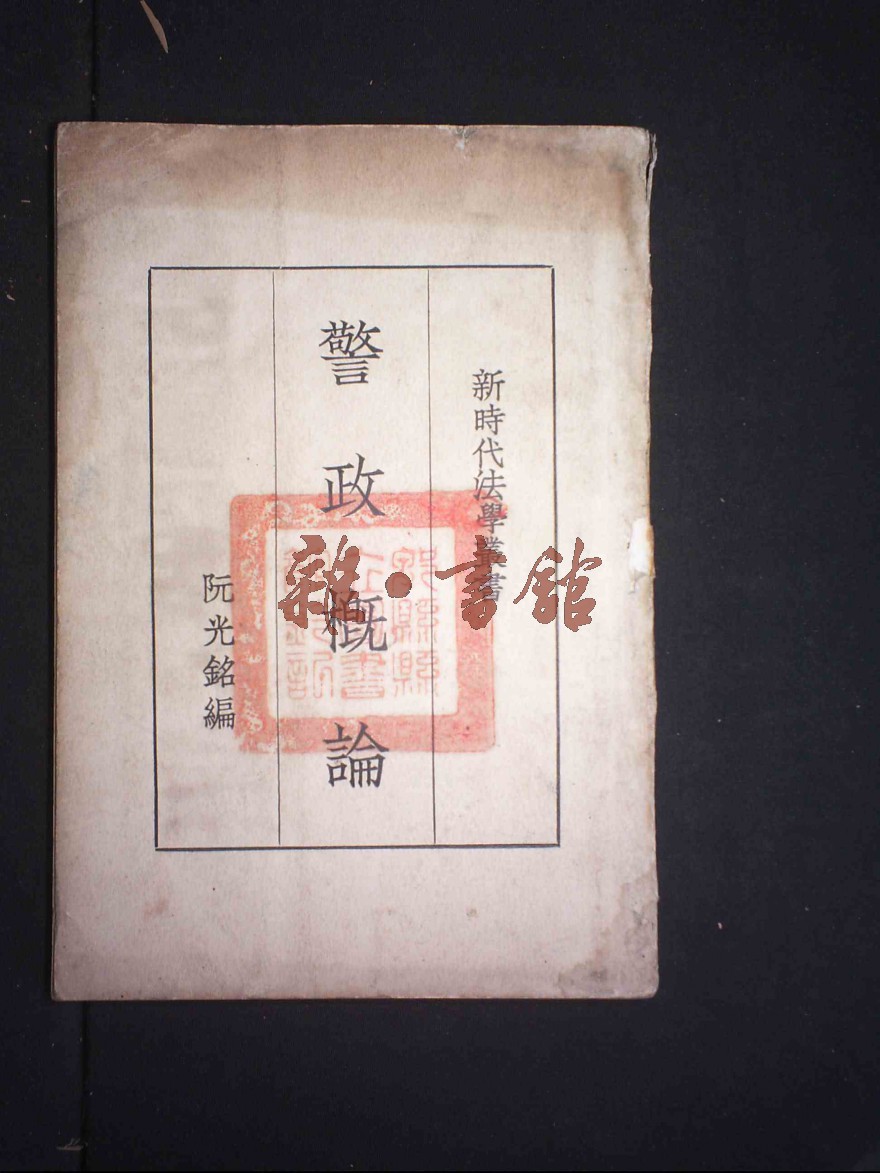 新時代法學叢書
警政概論
阮光銘編
雜·書館